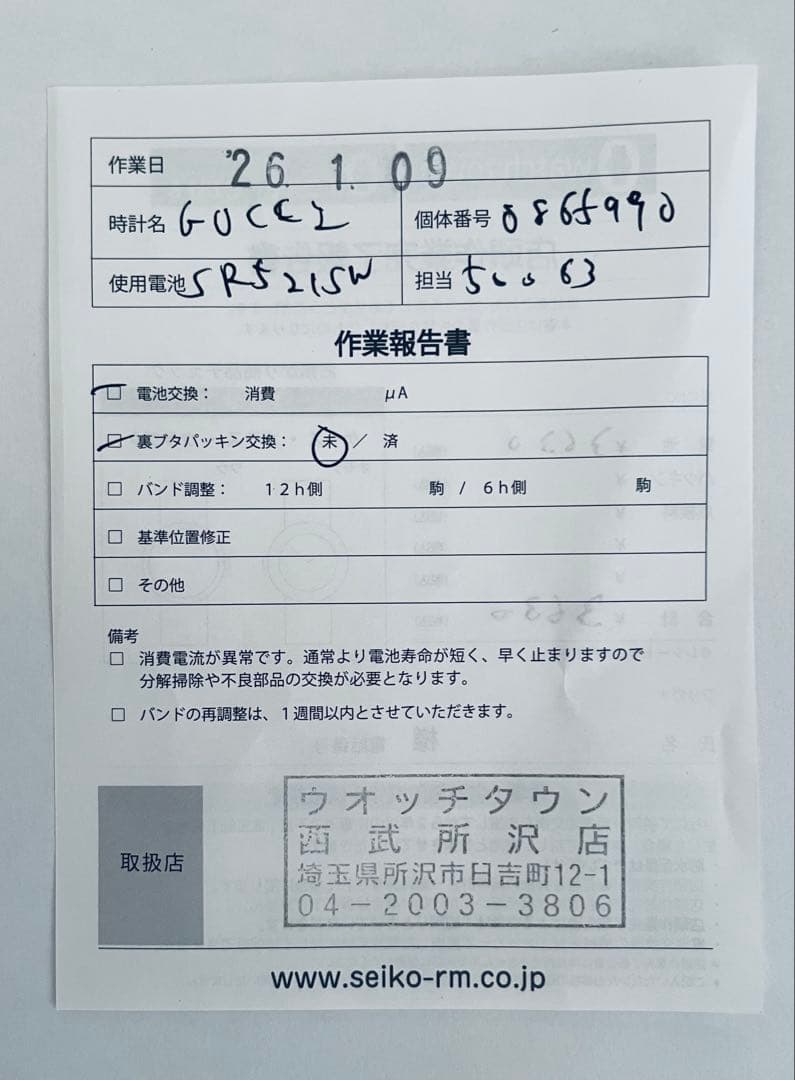 作業日 '26. 1. 09
時計名 GUCCI 個体番号 0865990
使用電池 SR521SW 担当 50063
作業報告書
□ 電池交換： 消費 μA
□ 裏ブタパッキン交換： 未 ／ 済
□ バンド調整： 12h側 駒 / 6h側 駒
□ 基準位置修正
□ その他
備考
□ 消費電流が異常です。通常より電池寿命が短く、早く止まりますので
分解掃除や不良部品の交換が必要となります。
□ バンドの再調整は、1週間以内とさせていただきます。
取扱店
ウオッチタウン
西武所沢店
埼玉県所沢市日吉町12-1
04-2003-3806
www.seiko-rm.co.jp